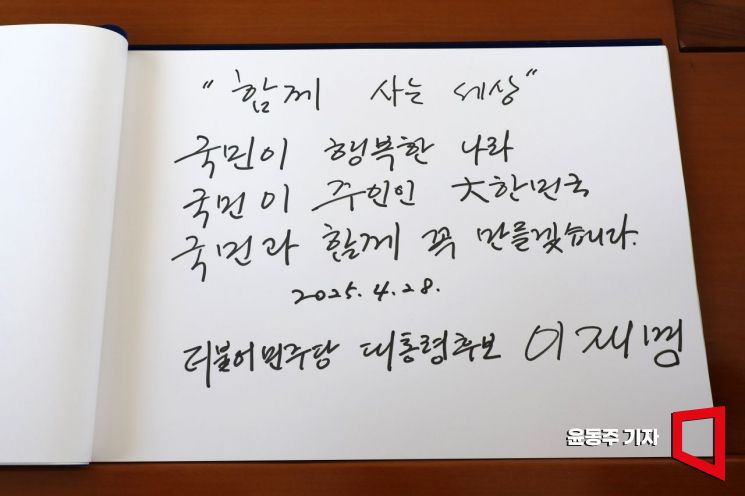 "함께 사는 세상"
국민이 행복한 나라
국민이 주인인 大한민국
국민과 함께 꼭 만들겠습니다.
2025.4.28.
더불어민주당 대통령후보 이재명
윤동주 기자